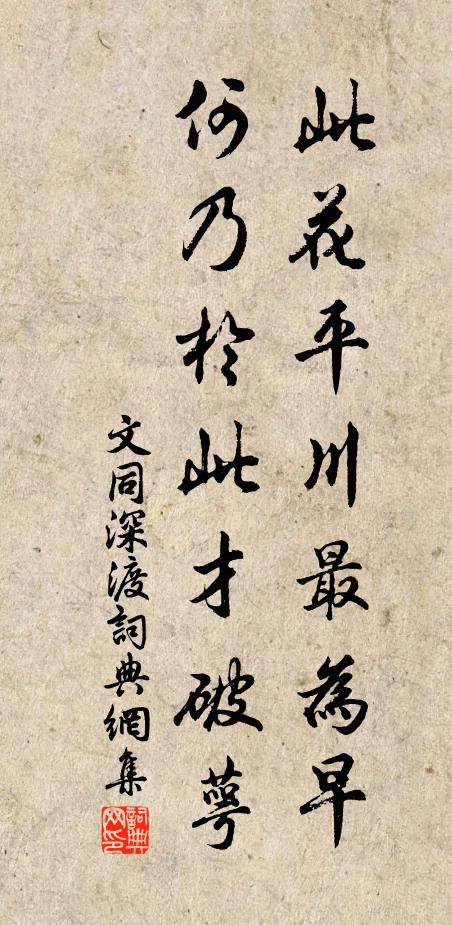 此花平川最為早
何乃於此才破萼
文同深渡詞典網集
詞典网印